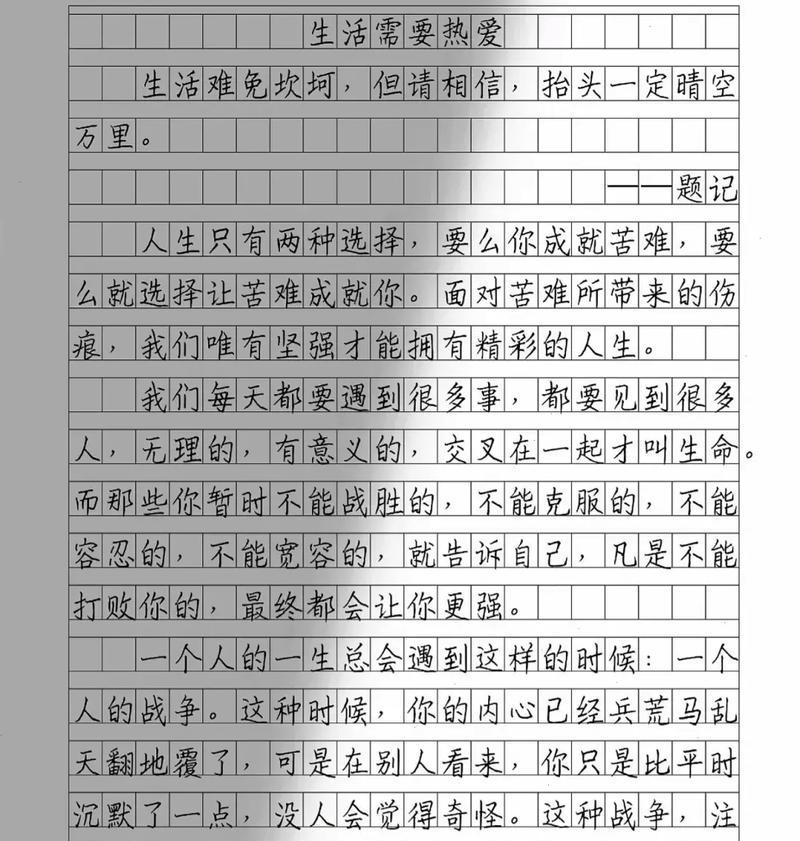 生活需要热爱
生活难免坎坷，但请相信，抬头一定晴空
万里。
——题记
人生只有两种选择，要么你成就苦难，要
么就选择让苦难成就你。面对苦难所带来的伤
痕，我们唯有坚强才能拥有精彩的人生。
我们每天都要遇到很多事，都要见到很多
人，无理的，有意义的，交叉在一起才叫生命。
而那些你暂时不能战胜的，不能克服的，不能
容忍的，不能宽容的，就告诉自己，凡是不能
打败你的，最终都会让你更强。
一个人的一生总会遇到这样的时候：一个
人的战争。这种时候，你的内心已经兵荒马乱
天翻地覆了，可是在别人看来，你只是比平时
沉默了一点，没人会觉得奇怪。这种战争，注